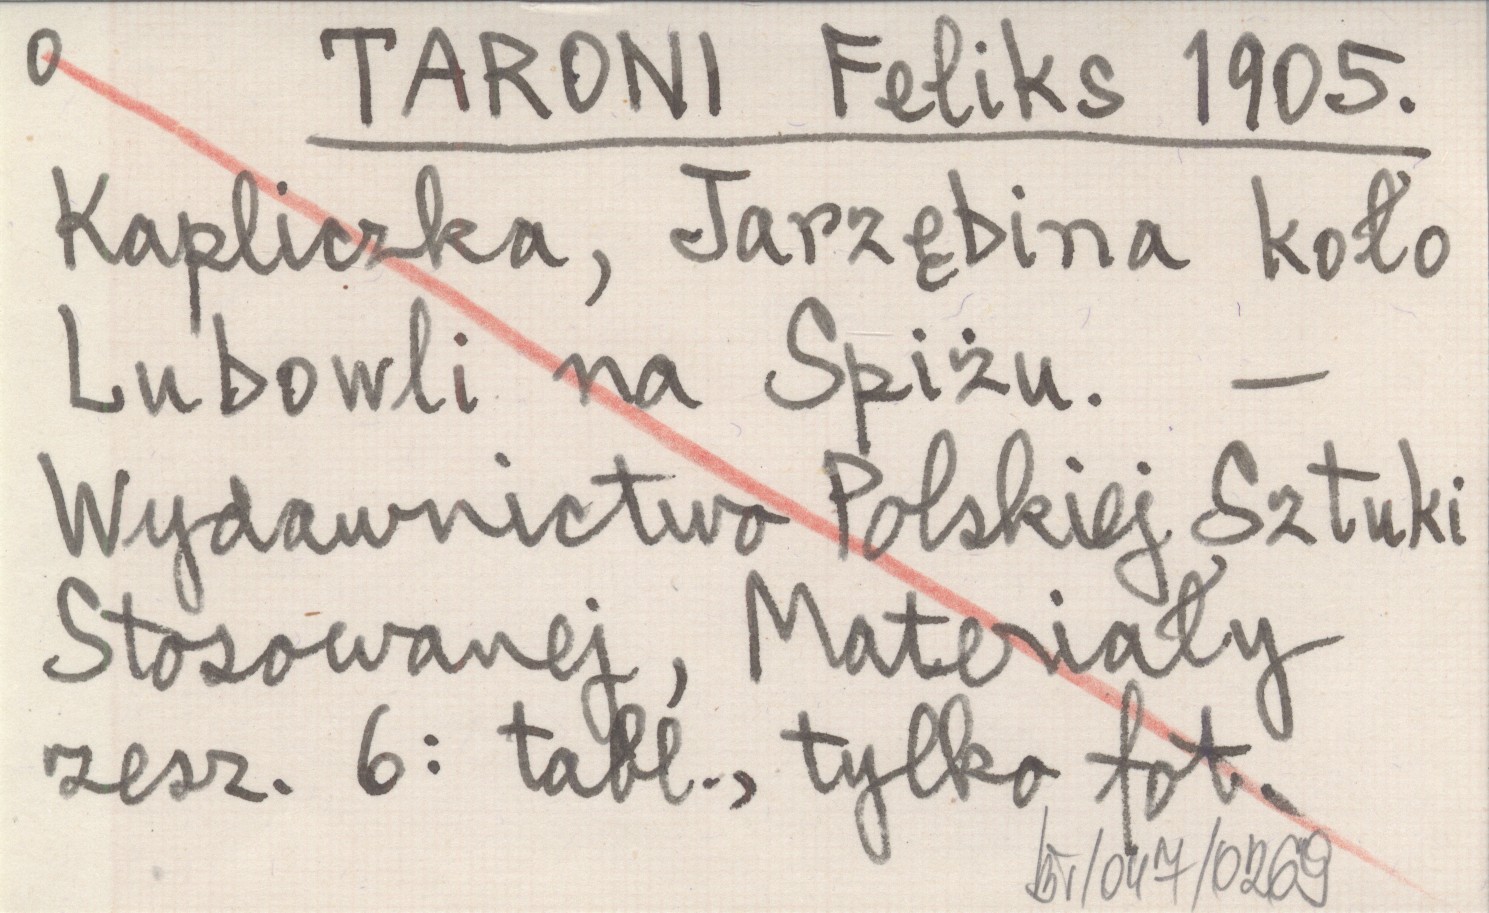 0 TARONI Feliks 1905.
Kapliczka, Jarzębina koło
Lubowli na Spiżu. —
Wydawnictwo Polskiej Sztuki
Stosowanej, Materiały
zesz. 6: tabl., tylko fot.
/047/0269